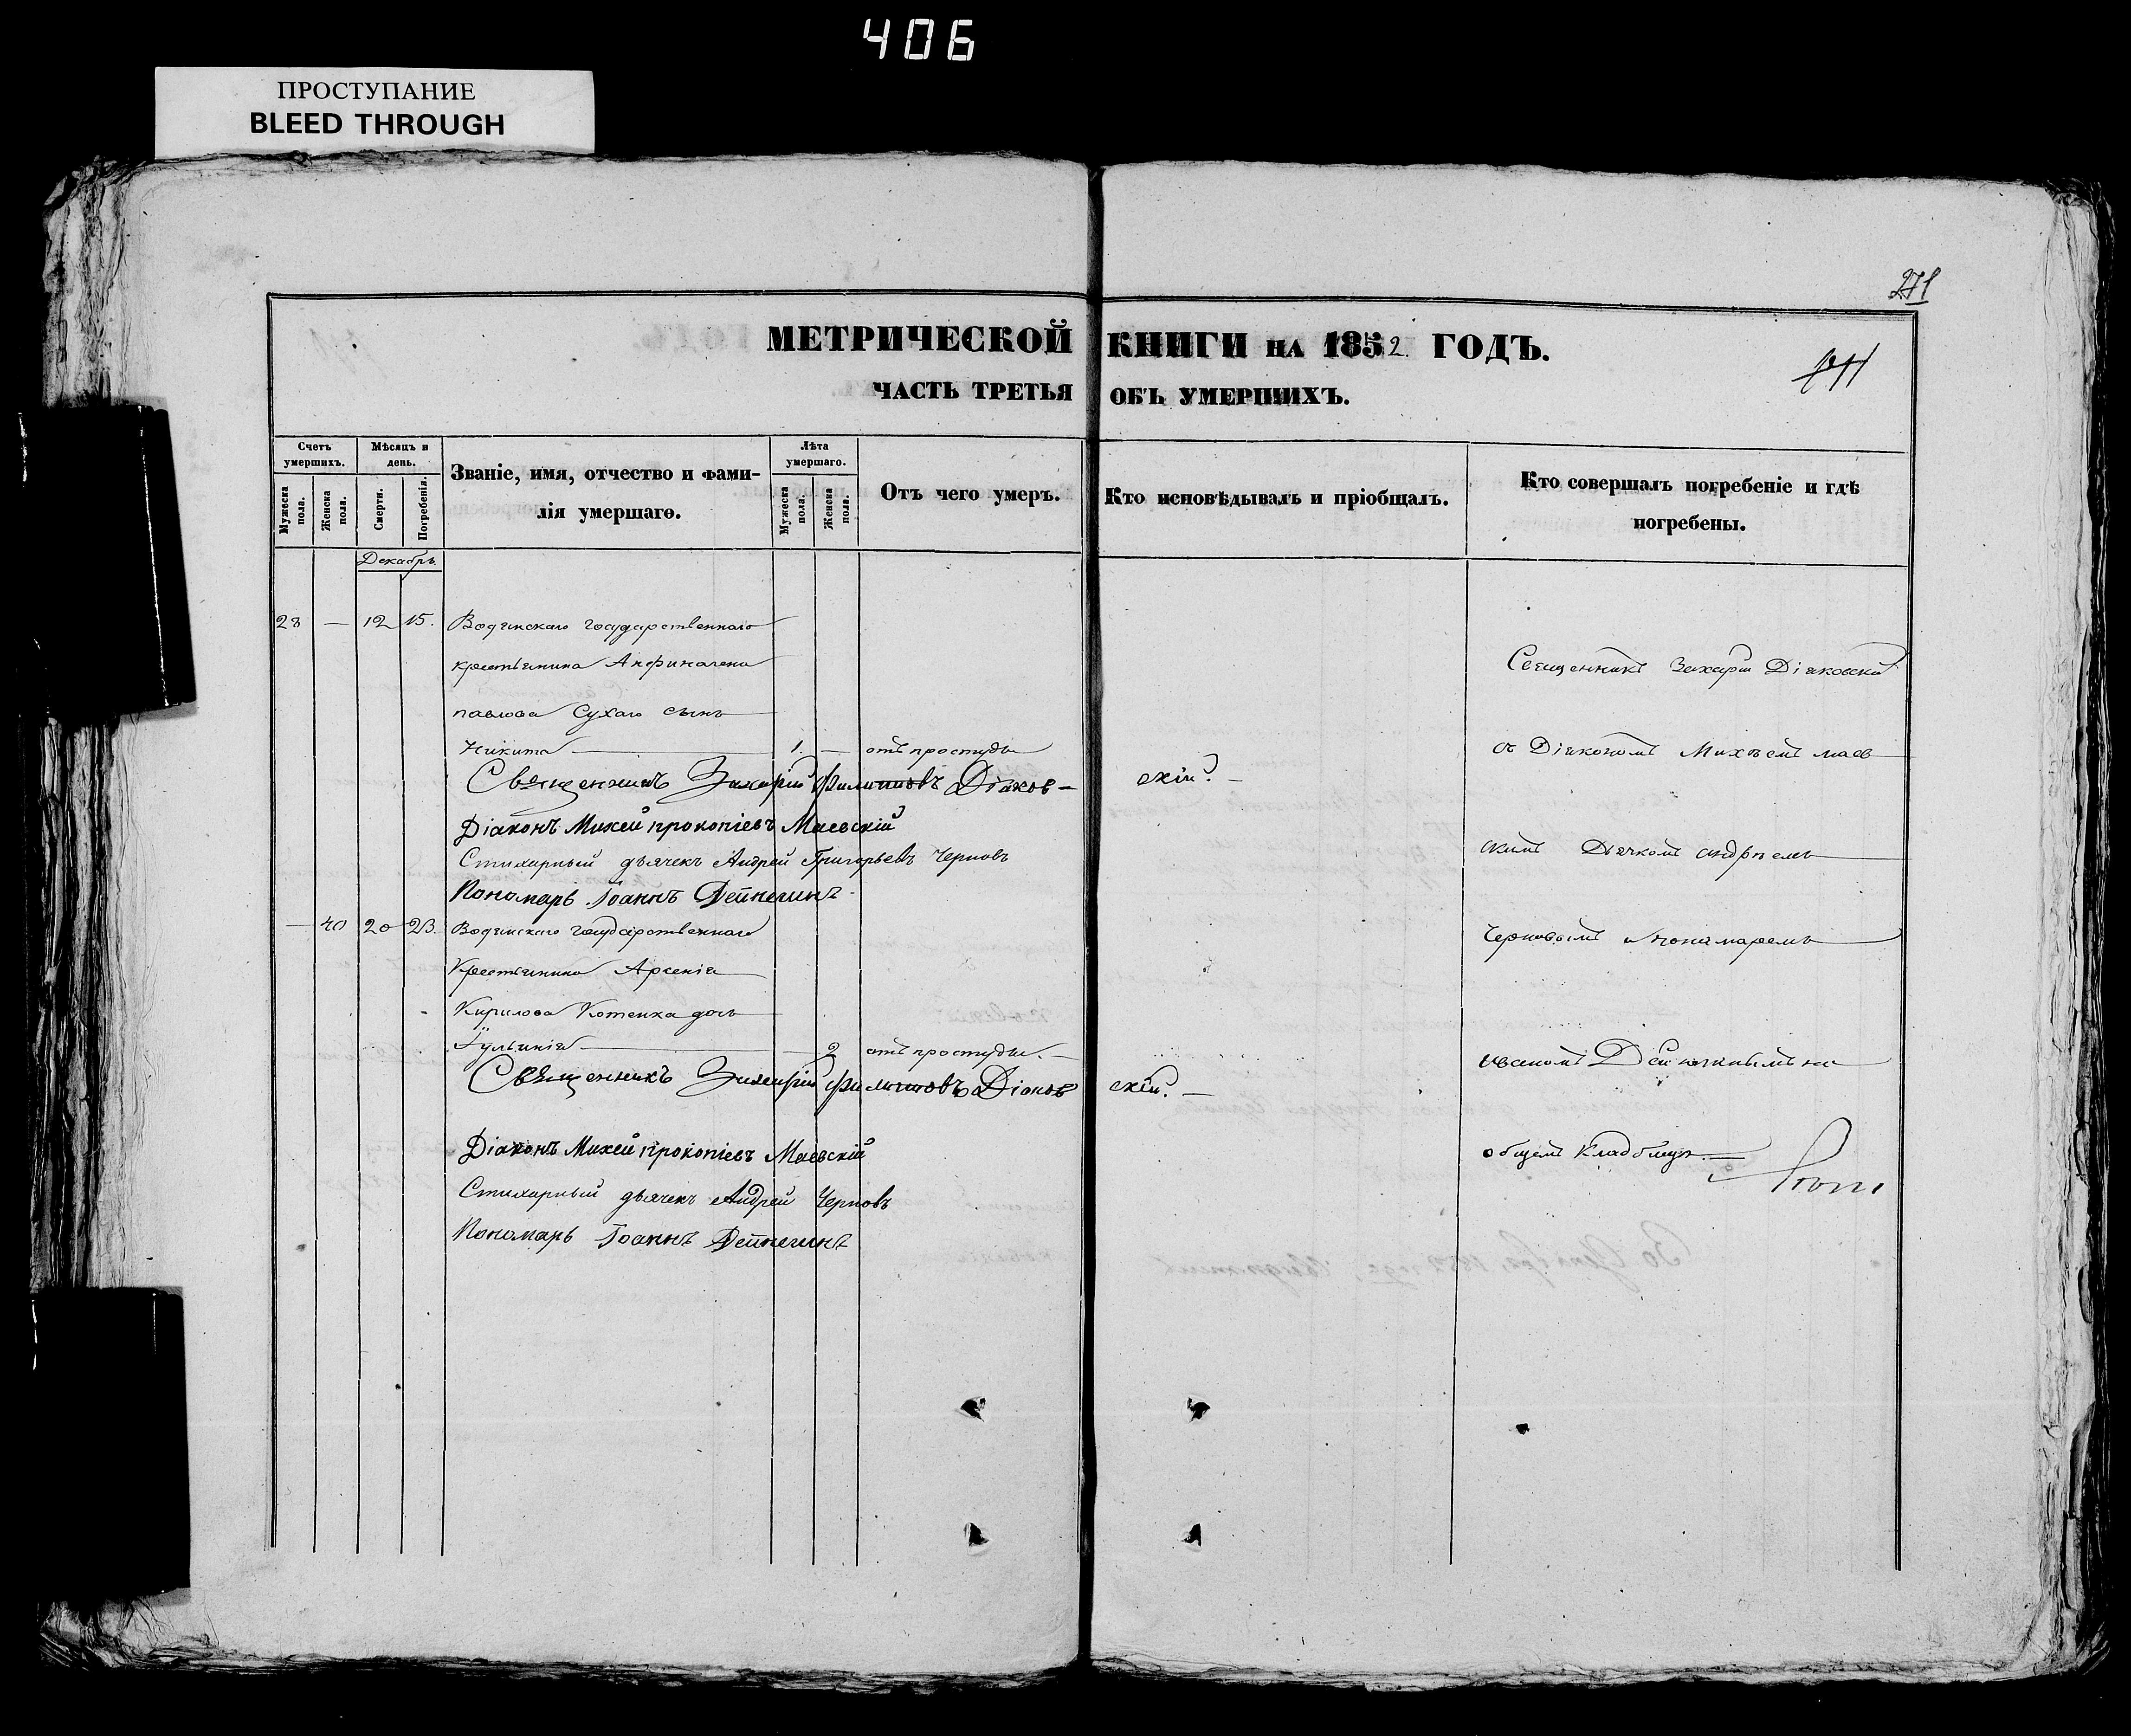 406
ПРОСТУПАНИЕ
BLEED THROUGH
271
МЕТРИЧЕСКОЙ КНИГИ НА 1852 ГОДЪ.
ЧАСТЬ ТРЕТЬЯ ОБЪ УМЕРШИХЪ.
Счетъ умершихъ.
Мужеска пола.
Женска пола.
Мѣсяцъ и день.
Смерти.
Погребенія.
Званіе, имя, отчество и фами-
лія умершаго.
Лѣта умершаго.
Мужеска пола.
Женска пола.
Отъ чего умеръ.
Кто исповѣдывалъ и пріобщалъ.
Кто совершалъ погребеніе и гдѣ
погребены.
Декабрь
28 — 12 15. Водянскаго государственнаго
крестьянина
павлова Сухаго сынъ
Никита — 1. — отъ простуды
Священникъ Захарій Филиповъ Діаков-скій.
Діаконъ Михей прокопіевъ Маевскій
Стихарный дьячекъ Андрей Григорьевъ Черновъ
Пономарь Іоаннъ Дейнегинъ
— 40 20 23. Водянскаго государственнаго
Крестьянина Арсенія
Кирилова Котенка дочь
— 2 отъ простуды. —
Священникъ Захарій Филиповъ Діаковскій. —
Діаконъ Михей прокопіевъ Маевскій
Стихарный дьячекъ Андрей Черновъ
Пономарь Іоаннъ Дейнегинъ
Священникъ Захарій Діяковскій
съ Діякономъ Михеемъ маев
скимъ Дячкомъ андреемъ
Черновымъ и понамаремъ
на
общемъ кладбищѣ.